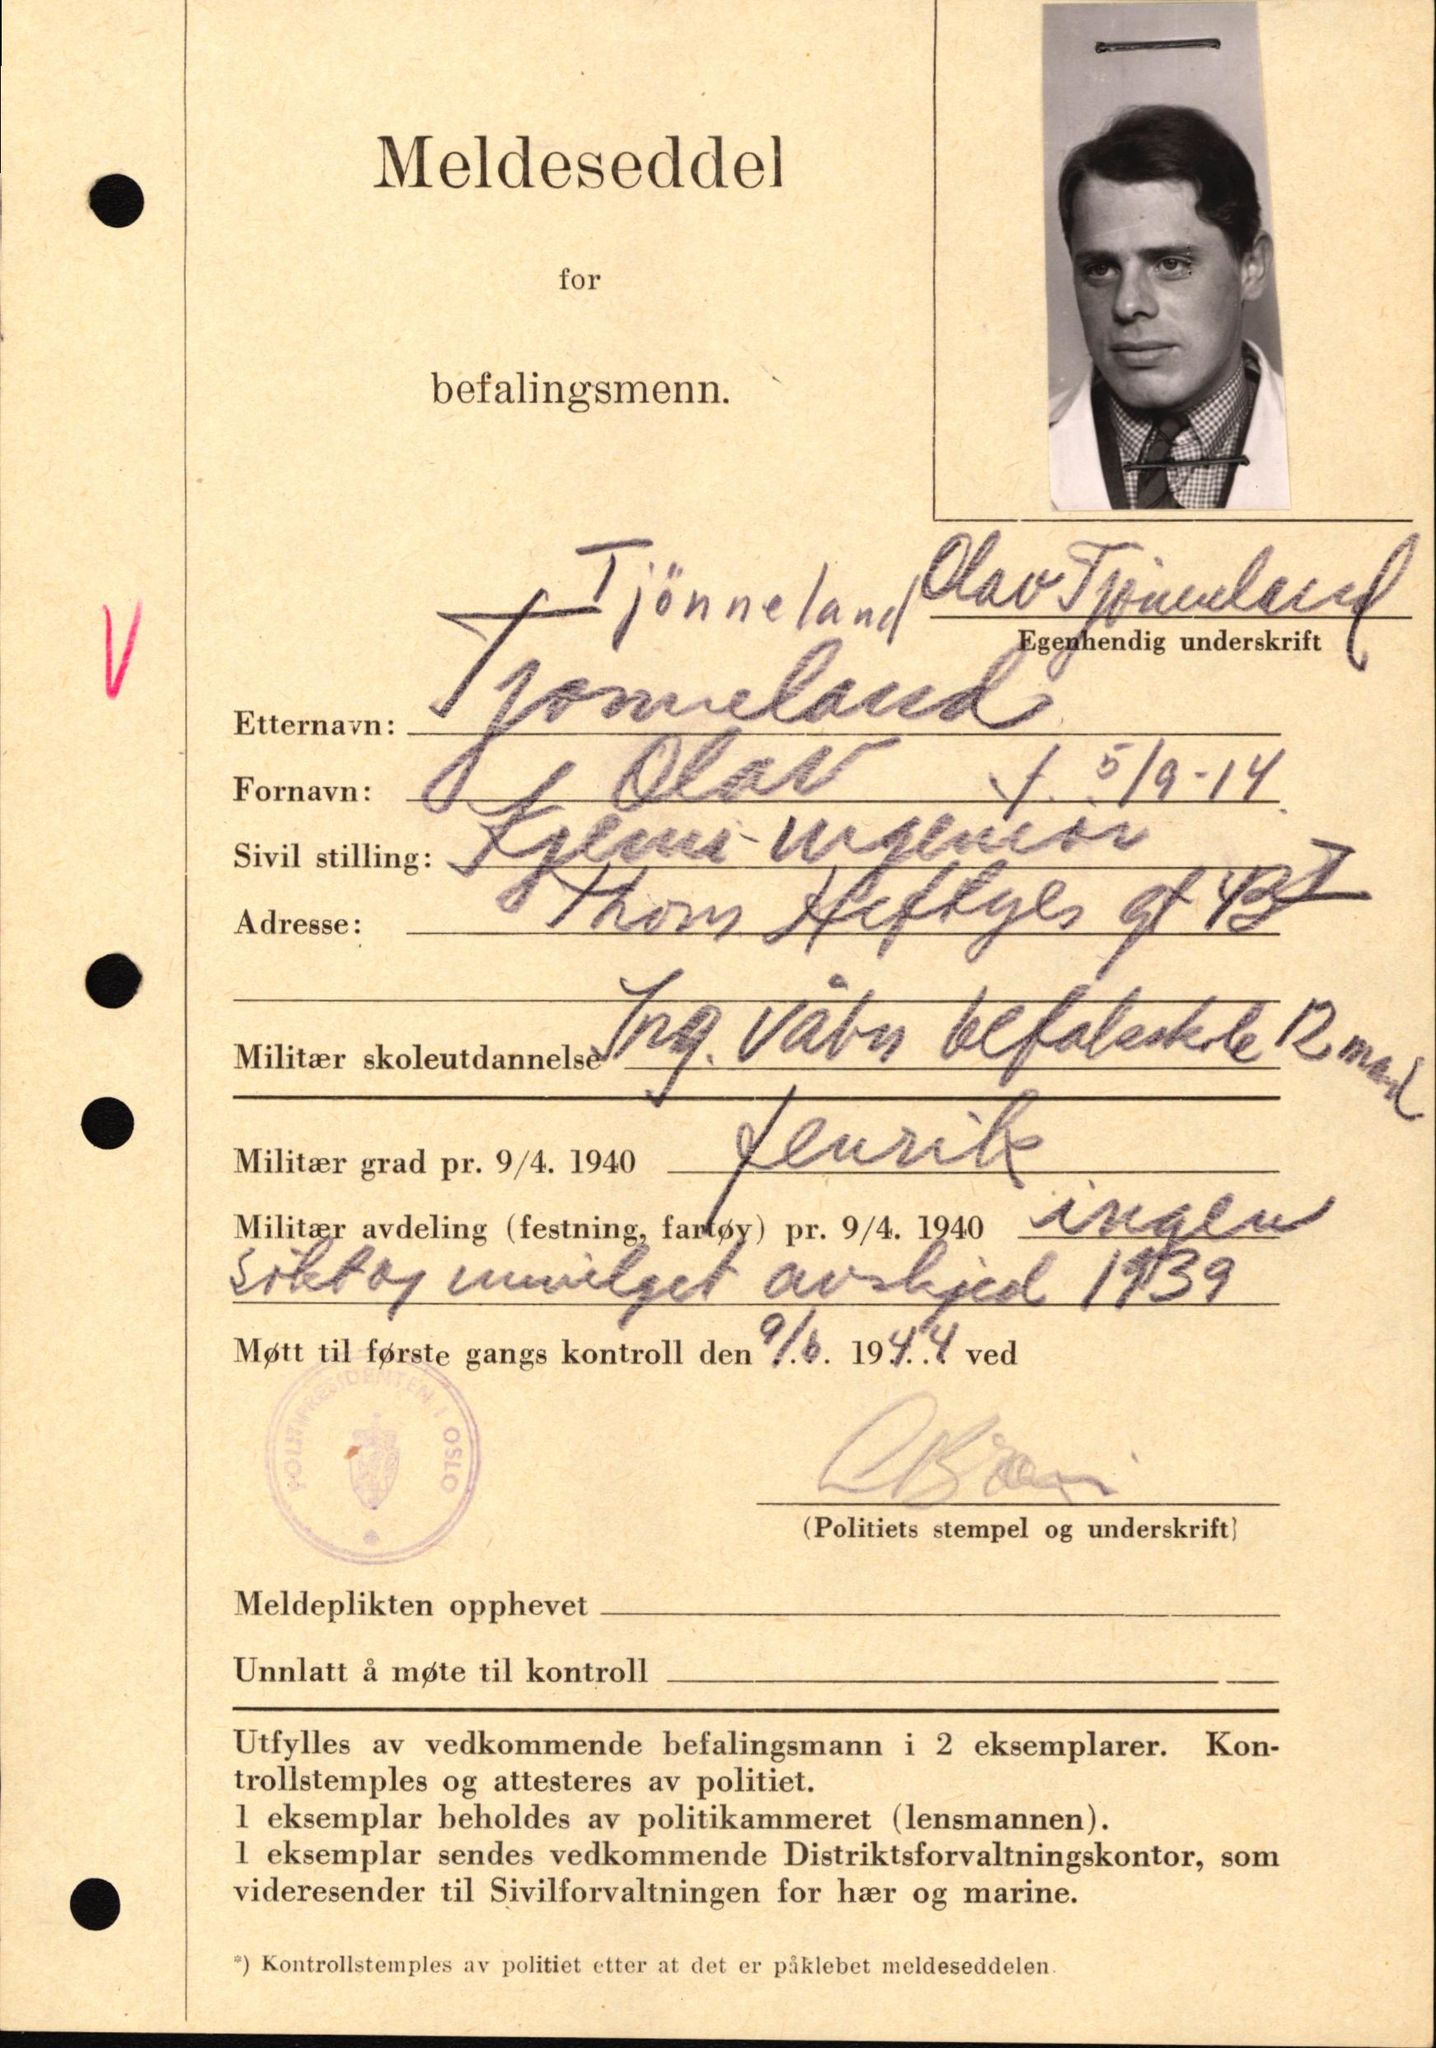 Meldeseddel
for
befalingsmenn.
Tjönneland
Olav Tjönneland
Egenhendig underskrift
Etternavn: Tjönneland
Fornavn: Olav f. 5/9-14
Sivil stilling: Kjemi-ingeniör
Adresse: Thom Heftyes gt 43 I
Militær skoleutdannelse Ing. våbn befalsskole 12 mnd
Militær grad pr. 9/4. 1940 fenrik
Militær avdeling (festning, fartøy) pr. 9/4. 1940 ingen
sökt og innvilget avskjed 1939
Møtt til første gangs kontroll den 9/6. 1944 ved
POLITIPRESIDENTEN I OSLO
(Politiets stempel og underskrift)
Meldeplikten opphevet
Unnlatt å møte til kontroll
Utfylles av vedkommende befalingsmann i 2 eksemplarer. Kon-
trollstemples og attesteres av politiet.
1 eksemplar beholdes av politikammeret (lensmannen).
1 eksemplar sendes vedkommende Distriktsforvaltningskontor, som
videresender til Sivilforvaltningen for hær og marine.
*) Kontrollstemples av politiet etter at det er påklebet meldeseddelen.
V